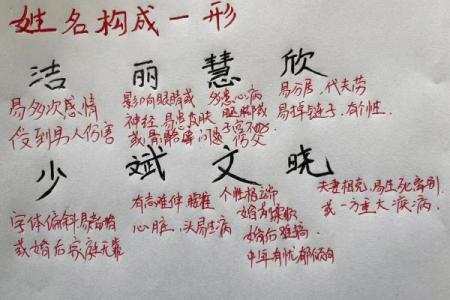 姓名构成一形
洁 丽 慧 欣
易多次感情
受到男人伤害
影响眼睛或
神经.易患皮肤
或骨骼等问题
易患心病
腿脚或
子宫不好
伤灾
易分居.代夫劳
易掉链子.有个性.
少 斌 文 晓
字体偏斜易离婚
或婚后家庭无靠
有高难伸 腰椎
心脏,头易生病
个性极端
婚后难搞
中年有忧郁倾向
夫妻相克,易生死离别
或一方重大疾病.